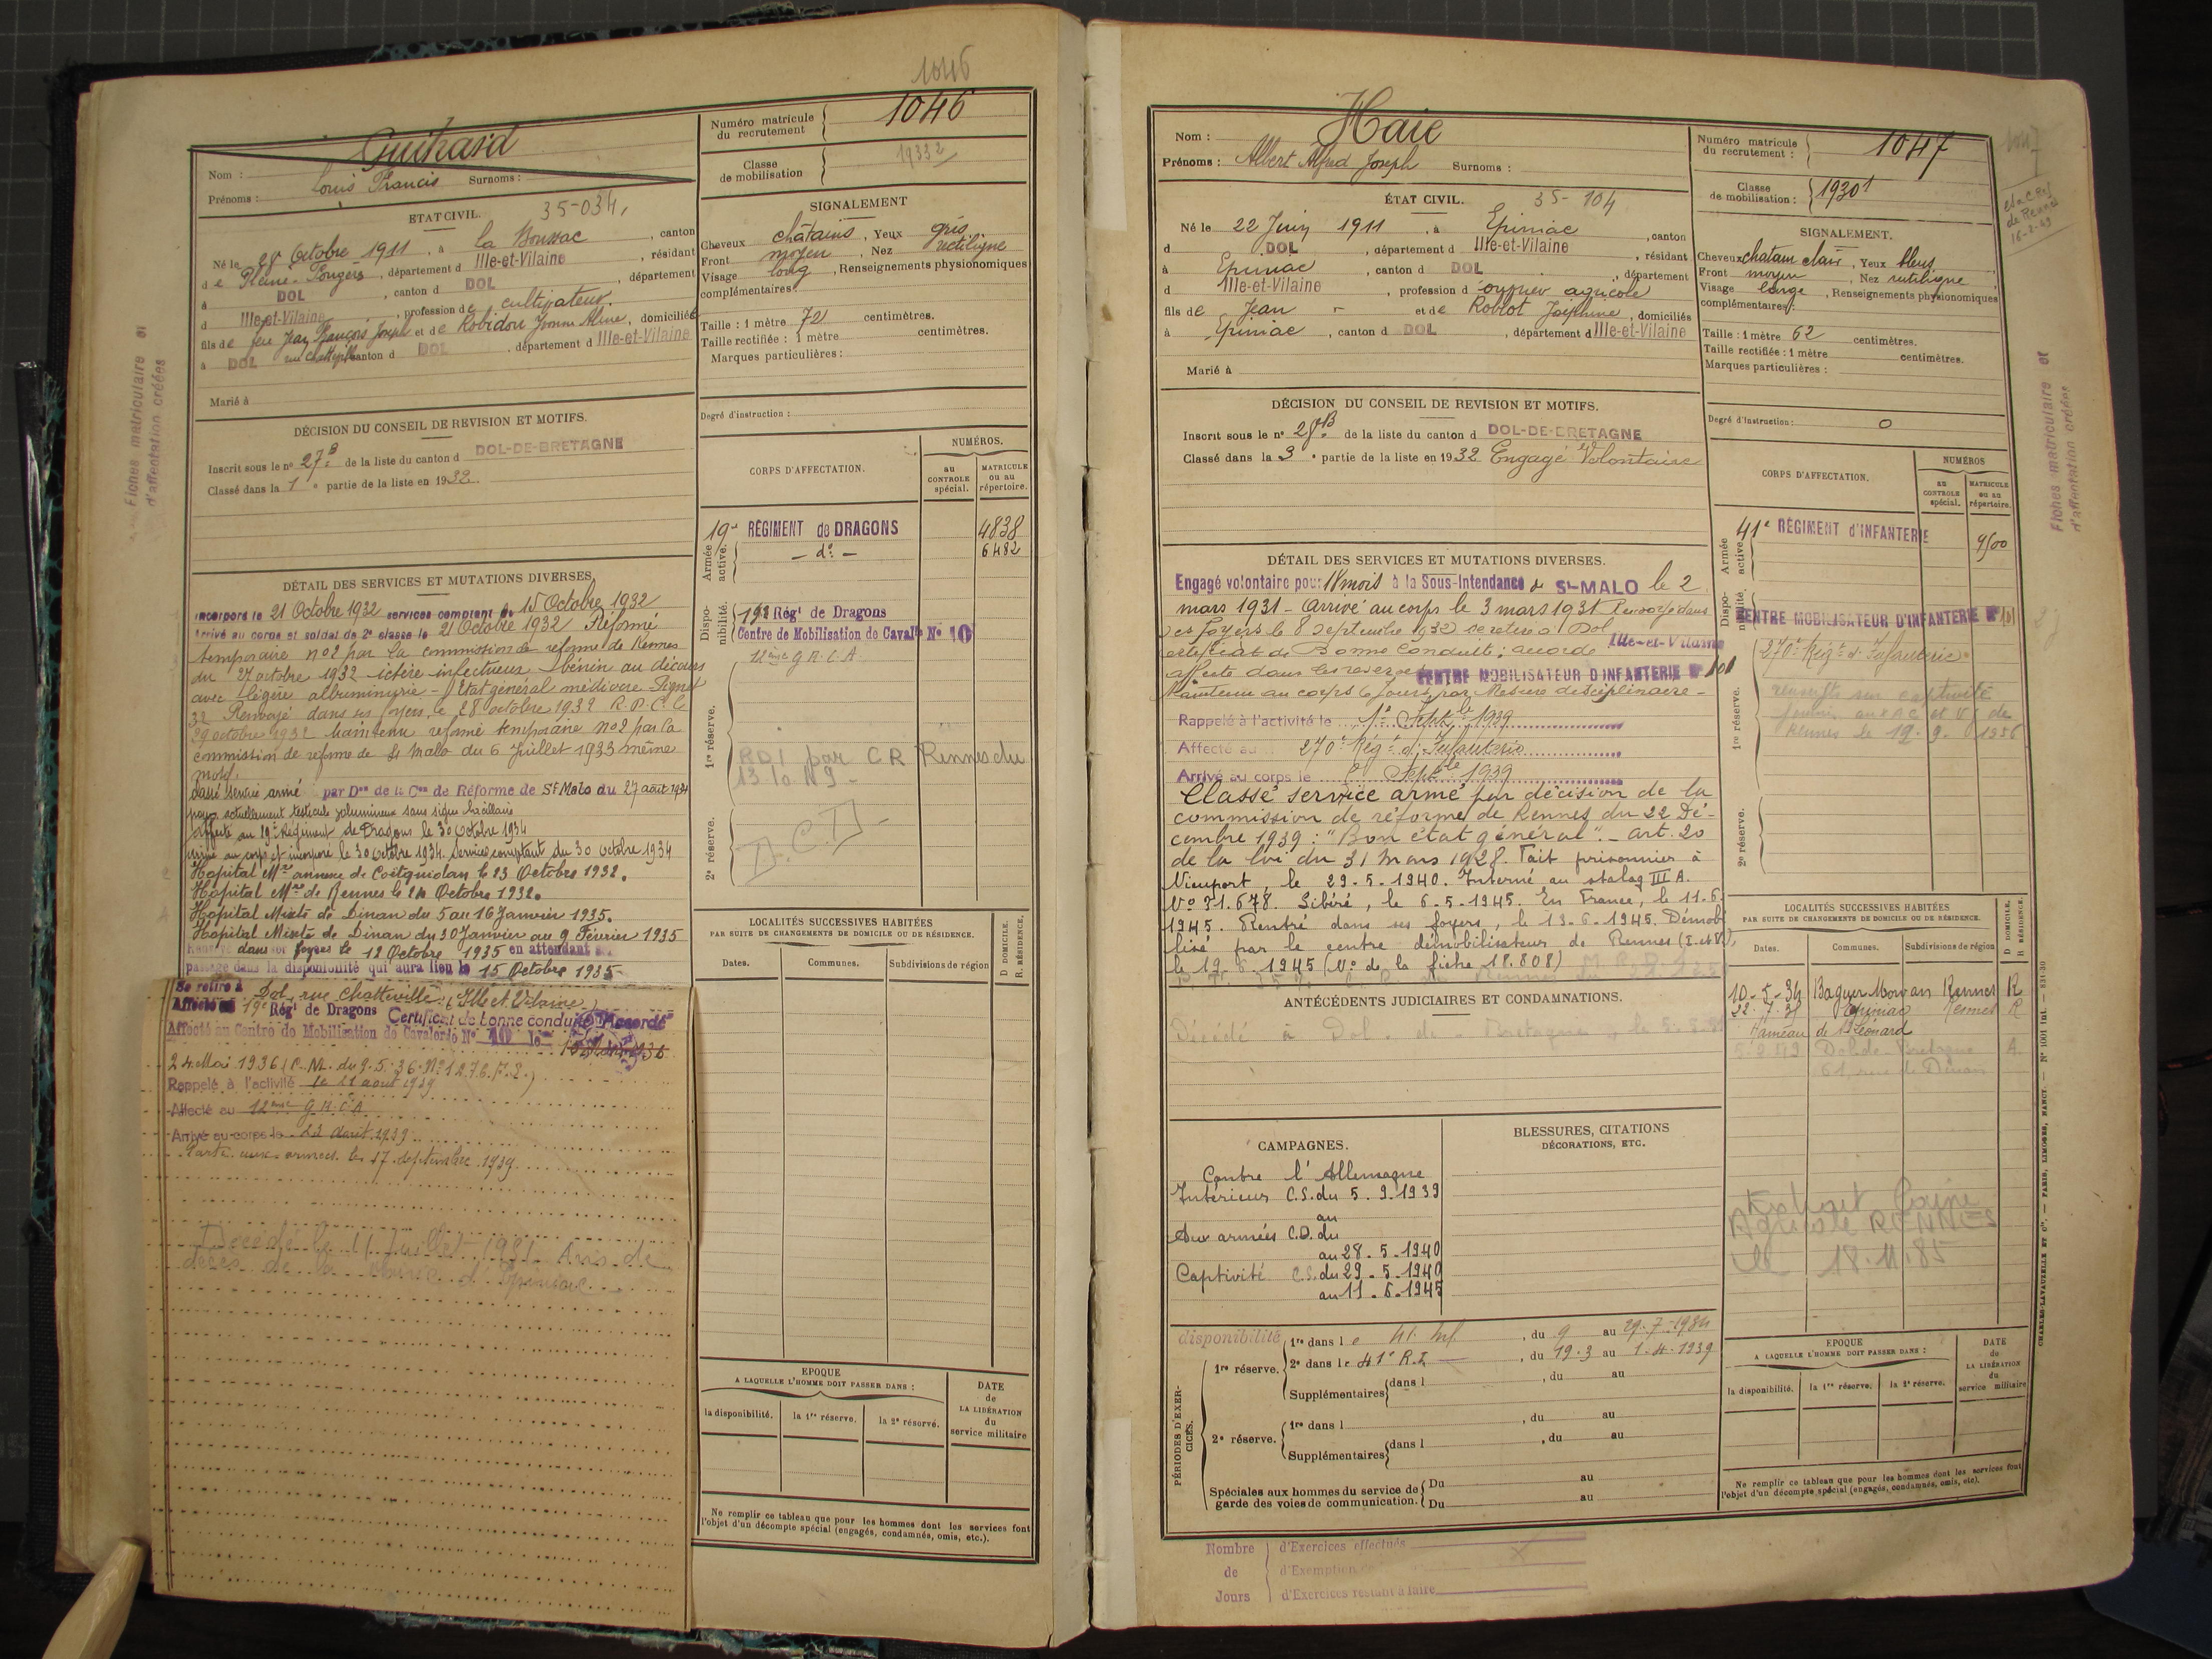 1046
Guihard
Nom :
Prénoms : Louis Francis Surnoms :
Numéro matricule du recrutement 1046
Classe de mobilisation 1933 2
ETAT CIVIL. 35-034,
Né le 28 Octobre 1911, à la Boussac, canton
de Pleine-Fougères, département d Ille-et-Vilaine, résidant
à DOL, canton d DOL, département
d Ille-et-Vilaine, profession de cultivateur.
fils de feu Jean François Joseph et de Robidou Jeanne Aline, domiciliés
à DOL rue Chatteville canton d DOL, département d Ille-et-Vilaine
Marié à
SIGNALEMENT
Cheveux châtains, Yeux gris
Front moyen, Nez rectiligne
Visage long, Renseignements physionomiques
complémentaires :
Taille : 1 mètre 72 centimètres.
Taille rectifiée : 1 mètre centimètres.
Marques particulières :
Degré d'instruction :
DÉCISION DU CONSEIL DE REVISION ET MOTIFS.
Inscrit sous le nº 27 B de la liste du canton d DOL-DE-BRETAGNE
Classé dans la 1e partie de la liste en 1932.
CORPS D'AFFECTATION.
NUMÉROS.
au CONTROLE spécial.
MATRICULE ou au répertoire.
Armée active.
19e RÉGIMENT de DRAGONS 4838
— dº — 6482
Disponibilité.
19e Régt de Dragons
Centre de Mobilisation de Cavalie Nº 10
12ème G.R.C.A.
1re réserve.
RD1 par CR Rennes du
13 10 49 -
2e réserve.
DÉTAIL DES SERVICES ET MUTATIONS DIVERSES.
Incorporé le 21 Octobre 1932 services comptant du 15 Octobre 1932
Arrivé au corps et soldat de 2e classe le 21 Octobre 1932 Réformé
temporaire nº2 par la commission de réforme de Rennes
du 27 octobre 1932 ictère infectieux bénin au décours
avec légère albuminurie - Etat général médiocre Pignet
32 Renvoyé dans ses foyers, le 28 octobre 1932 R.P.C. le
29 octobre 1932 Maintenu réformé temporaire nº2 par la
commission de réforme de St Malo du 6 Juillet 1933 même
motif.
Classé service armé par Don de la Con de Réforme de St Malo du 27 août 1934
actuellement testicule volumineux sans signe bacillaire
Affecté au 19e Régiment de Dragons le 30 octobre 1934
Arrivé au corps et incorporé le 30 octobre 1934. Service comptant du 30 octobre 1934
Hôpital Mre annexe de Coëtquidan le 23 Octobre 1932.
Hôpital Mre de Rennes le 24 Octobre 1932.
Hôpital Mixte de Dinan du 5 au 16 Janvier 1935.
Hôpital Mixte de Dinan du 30 Janvier au 9 Février 1935
Renvoyé dans ses foyers le 12 Octobre 1935 en attendant son
passage dans la disponibilité qui aura lieu le 15 Octobre 1935
Se retire à Dol, rue Chatteville (Ille et Vilaine)
Affecté au 19e Régt de Dragons Certificat de bonne conduite Accordé
Affecté au Centre de Mobilisation de Cavalerie Nº 10 le
24 Mai 1936 (C.M. du 9.5.36.
Rappelé à l'activité le 21 août 1939
Affecté au 12ème G.R.C.A
Arrivé au corps le 23 Août 1939
Parti aux armées le 17 septembre 1939
Décédé le 11 Juillet 1981. Avis de
décès de la Mairie d'Epiniac
LOCALITÉS SUCCESSIVES HABITÉES
PAR SUITE DE CHANGEMENTS DE DOMICILE OU DE RÉSIDENCE.
Dates. Communes. Subdivisions de région
D DOMICILE. R. RÉSIDENCE.
EPOQUE
A LAQUELLE L'HOMME DOIT PASSER DANS :
la disponibilité. la 1re réserve. la 2e réserve.
DATE de LA LIBÉRATION du service militaire
Ne remplir ce tableau que pour les hommes dont les services font
l'objet d'un décompte spécial (engagés, condamnés, omis, etc.).
Fiches matriculaire et
d'affectation créées
Nom : Haie
Prénoms : Albert Alfred Joseph Surnoms :
Numéro matricule du recrutement : 1047
Classe de mobilisation : 1930 1
1047
de Rennes
ÉTAT CIVIL. 35-104
Né le 22 Juin 1911, à Epiniac, canton
d DOL, département d Ille-et-Vilaine, résidant
à Epiniac, canton d DOL, département
d Ille-et-Vilaine, profession d'ouvrier agricole
fils de Jean et de Roblot Joséphine, domiciliés
à Epiniac, canton d DOL, département d Ille-et-Vilaine
Marié à
SIGNALEMENT.
Cheveux chatain clair, Yeux bleus
Front moyen, Nez rectiligne
Visage large, Renseignements physionomiques
complémentaires :
Taille : 1 mètre 62 centimètres.
Taille rectifiée : 1 mètre centimètres.
Marques particulières :
Degré d'instruction : 0
DÉCISION DU CONSEIL DE REVISION ET MOTIFS.
Inscrit sous le nº 28 B de la liste du canton d DOL-DE-BRETAGNE
Classé dans la 3e partie de la liste en 1932 Engagé Volontaire
CORPS D'AFFECTATION.
NUMÉROS
au CONTROLE spécial.
MATRICULE ou au répertoire.
Armée active.
41e RÉGIMENT d'INFANTERIE 9500
Disponibilité.
CENTRE MOBILISATEUR D'INFANTERIE Nº 101
1re réserve.
270e Régt d'Infanterie
renseigts sur captivité
fournis aux A C et V G de
Rennes le 19.9.1956
2e réserve.
DÉTAIL DES SERVICES ET MUTATIONS DIVERSES.
Engagé volontaire pour 18 mois à la Sous-Intendance de St-MALO le 2
mars 1931 - Arrivé au corps le 3 mars 1931 Renvoyé dans
ses foyers le 8 Septembre 1932 se retire à Dol Ille-et-Vilaine
Certificat de Bonne Conduite : accordé
affecté dans les réserves CENTRE MOBILISATEUR D'INFANTERIE Nº 101
Maintenu au corps 6 jours par Mesure disciplinaire -
Rappelé à l'activité le 1er Septbre 1939
Affecté au 270e Régt d'Infanterie
Arrivé au corps le Septbre 1939
Classé service armé par décision de la
commission de réforme de Rennes du 22 Dé-
cembre 1939 : "Bon état général". - art. 20
de la loi du 31 Mars 1928. Fait prisonnier à
Nieuport, le 29-5-1940. Interné au stalag III A.
Nº 31.678. Libéré, le 6-5-1945. En France, le 11-6-
1945. Rentré dans ses foyers, le 13-6-1945. Démobi-
lisé par le centre démobilisateur de Rennes (I. et V.),
le 19-6-1945 (Nº de la fiche 18.808)
ANTÉCÉDENTS JUDICIAIRES ET CONDAMNATIONS.
Décédé à Dol-de-Bretagne le
LOCALITÉS SUCCESSIVES HABITÉES
PAR SUITE DE CHANGEMENTS DE DOMICILE OU DE RÉSIDENCE.
Dates. Communes. Subdivisions de région
D DOMICILE. R RÉSIDENCE.
10-5-34 Baguer Morvan Rennes R
Epiniac Rennes R
Hameau de St Léonard
Dol-de-Bretagne
61, rue de Dinan
CAMPAGNES.
Contre l'Allemagne
Intérieur C.S. du 5.9.1939
au
Aux armées C.D. du
au 28.5.1940
Captivité C.S. du 29.5.1940
au 11.6.1945
BLESSURES, CITATIONS
DÉCORATIONS, ETC.
Agricole RENNES
le 18.11.85
PÉRIODES D'EXERCICES.
disponibilité
1re réserve.
1re dans le 41. Inf, du 9 au 29-7-1934
2e dans le 41e R.I., du 19-3 au 1-4-1939
Supplémentaires dans l , du au
2e réserve.
1re dans l , du au
Supplémentaires dans l , du au
Spéciales aux hommes du service de
garde des voies de communication.
Du au
Du au
EPOQUE
A LAQUELLE L'HOMME DOIT PASSER DANS :
la disponibilité. la 1re réserve. la 2e réserve.
DATE de LA LIBÉRATION du service militaire
Ne remplir ce tableau que pour les hommes dont les services font
l'objet d'un décompte spécial (engagés, condamnés, omis, etc).
Nombre de Jours
d'Exercices effectués
d'Exemption
d'Exercices restant à faire
Fiches matriculaire et
d'affectation créées
CHARLES-LAVAUZELLE ET Cie. — PARIS, LIMOGES, NANCY. — Nº 1001 int. — 831-30